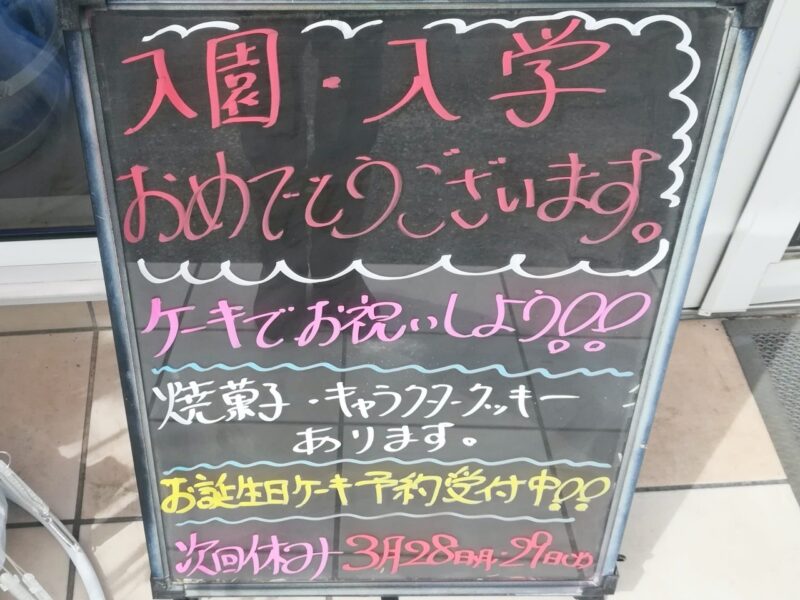 入園・入学
おめでとうございます。
ケーキでお祝いしよう!!
焼菓子・キャラクタークッキー
あります。
お誕生日ケーキ予約受付中!!
次回休み 3月28日(月)・29日(火)